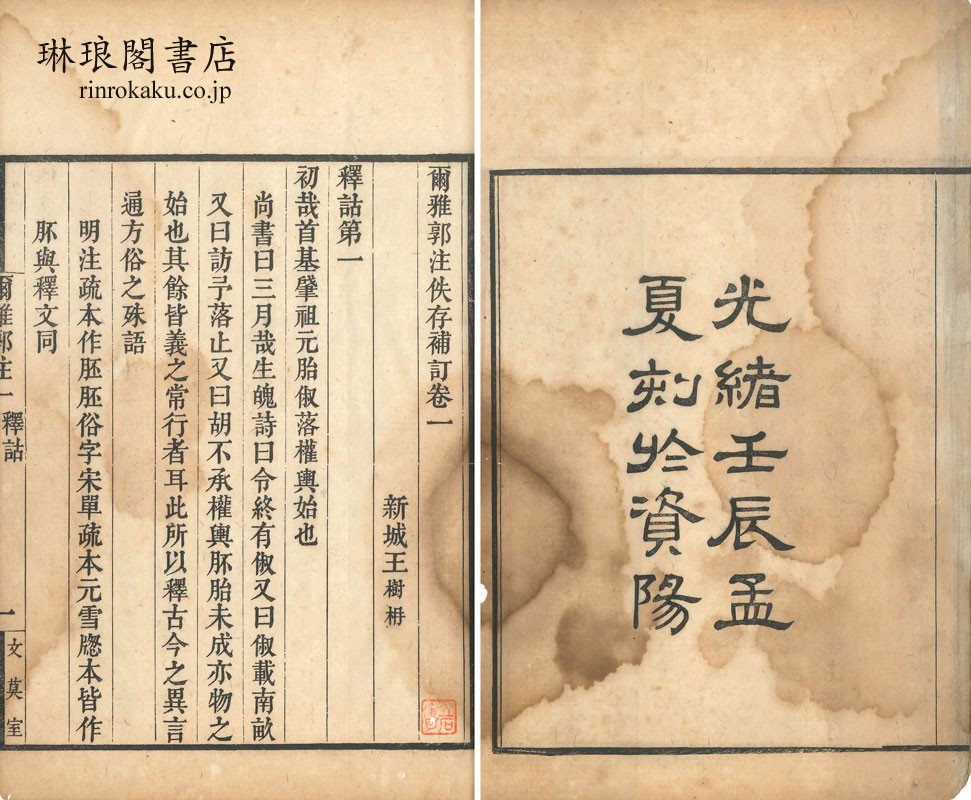 琳琅閣書店
rinrokaku.co.jp
光緒壬辰孟
夏刻於資陽
爾雅郭注佚存補訂卷一
新城王樹枏
釋詁第一
初哉首基肇祖元胎俶落權輿始也
尚書曰三月哉生魄詩曰令終有俶又曰俶載南畝
又曰訪予落止又曰胡不承權輿胚胎未成亦物之
始也其餘皆義之常行者耳此所以釋古今之異言
通方俗之殊語
明注疏本作胚胚俗字宋單疏本元雪牕本皆作
肧與釋文同
爾雅郭注一 釋詁
一
文莫室